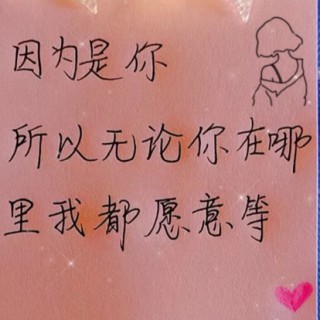 因为是你
所以无论你在哪
里我都愿意等